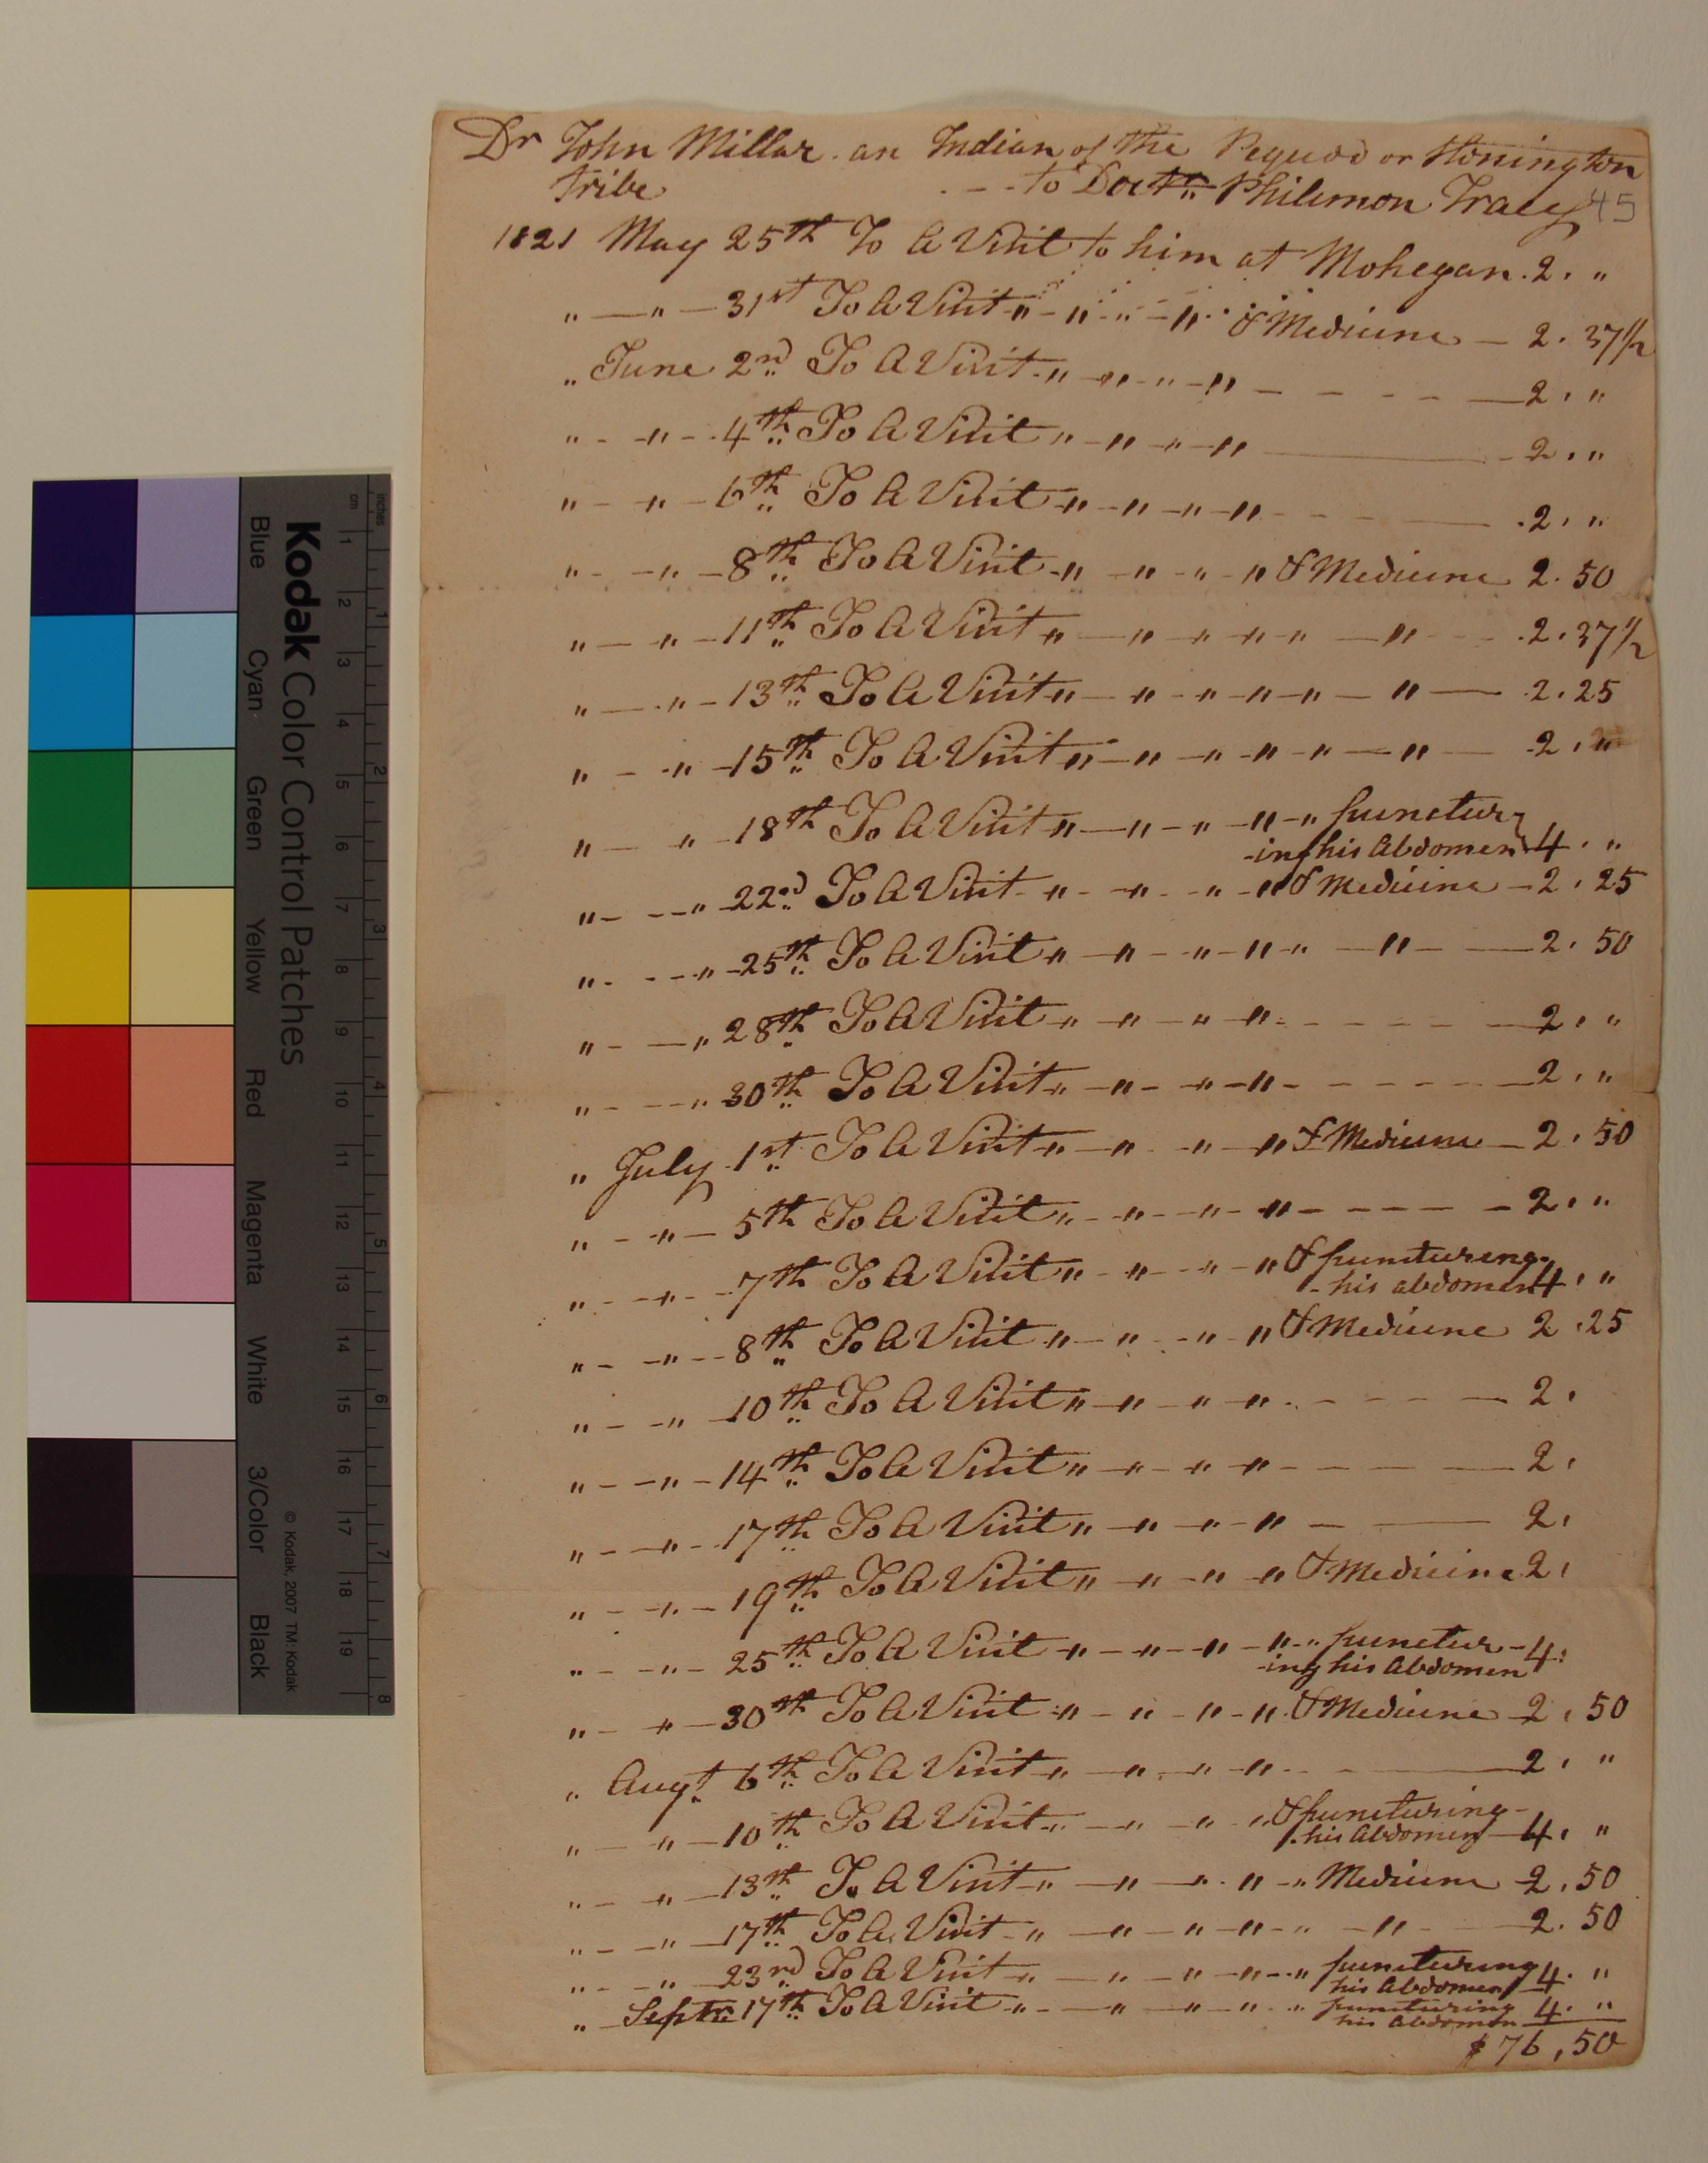 Dr John Millar. an Indian of the Pequod or Stonington
tribe - - - to Doctr. Philemon Tracy 45
1821 May 25th To A Visit to him at Mohegan. 2. "
" — " — 31st To A Visit " - " - " - " & Medicine — 2. 37 1/2
" June 2nd To A Visit - " - " - " - " - - - - — 2. "
" - " - 4th To A Visit " - " - " - " — 2. "
" - " - 6th To A Visit " - " - " - " - - — 2. "
" - - " - 8th To A Visit - " - " - " - " & Medicine 2. 50
" — " - 11th To A Visit " — " - " - " - " — " - - 2. 37 1/2
" — " - 13th To A Visit " — " - " - " - " — " — 2. 25
" - " - 15th To A Visit " - " - " - " - " — " — 2. "
" — " - 18th To A Visit " — " - " - " - " punctur
-ing his Abdomen 4. "
" - - " - 22nd To A Visit - " - " - " - " & Medicine - 2. 25
" - - " - 25th To A Visit " - " - " - " - " — " — 2. 50
" - — " 28th To A Visit " - " - " - " - - - - 2. "
" - — " 30th To A Visit " - " - " - " - - - - 2. "
" July 1st To A Visit " - " - " - " & Medicine — 2. 50
" - " — 5th To A Visit " - " - " - " - - - - - 2. "
" - " - 7th To A Visit " - " - " - " & puncturing
- his abdomen 4. "
" - " - - 8th To A Visit " - " - " - " & Medicine 2. 25
" - - " - 10th To A Visit " - " - " - " - - - — 2.
" - - " - 14th To A Visit " - " - " - " - - — 2.
" - " - - 17th To A Visit " - " - " - " — — 2.
" - " - 19th To A Visit " - " - " - " & Medicine 2.
" - - " - 25th To A Visit " - " - " - " - " punctur - 4.
-ing his Abdomen
" - " — 30th To A Visit " - " - " - " & Medicine - 2. 50
" Augt. 6th To A Visit " - " - " - " - — 2. "
" - " — 10th To A Visit " - " - " - " & puncturing -
- his Abdomen — 4. "
" - " — 13th To A Visit - " — " - " - " - " Medicine - 2. 50
" - - " — 17th To A Visit - " — " - " - " - " — " — 2. 50
" - - " — 23rd To A Visit - " — " - " - " - " puncturing 4. "
his Abdomen
" - Septr. 17th To A Visit " - " - " - " - " puncturing 4. "
his Abdomen
$76,50
Kodak Color Control Patches
inches
cm
1 2 3 4 5 6 7 8 9 10 11 12 13 14 15 16 17 18 19
1 2 3 4 5 6 7 8
Blue Cyan Green Yellow Red Magenta White 3/Color Black
© Kodak, 2007 TM: Kodak